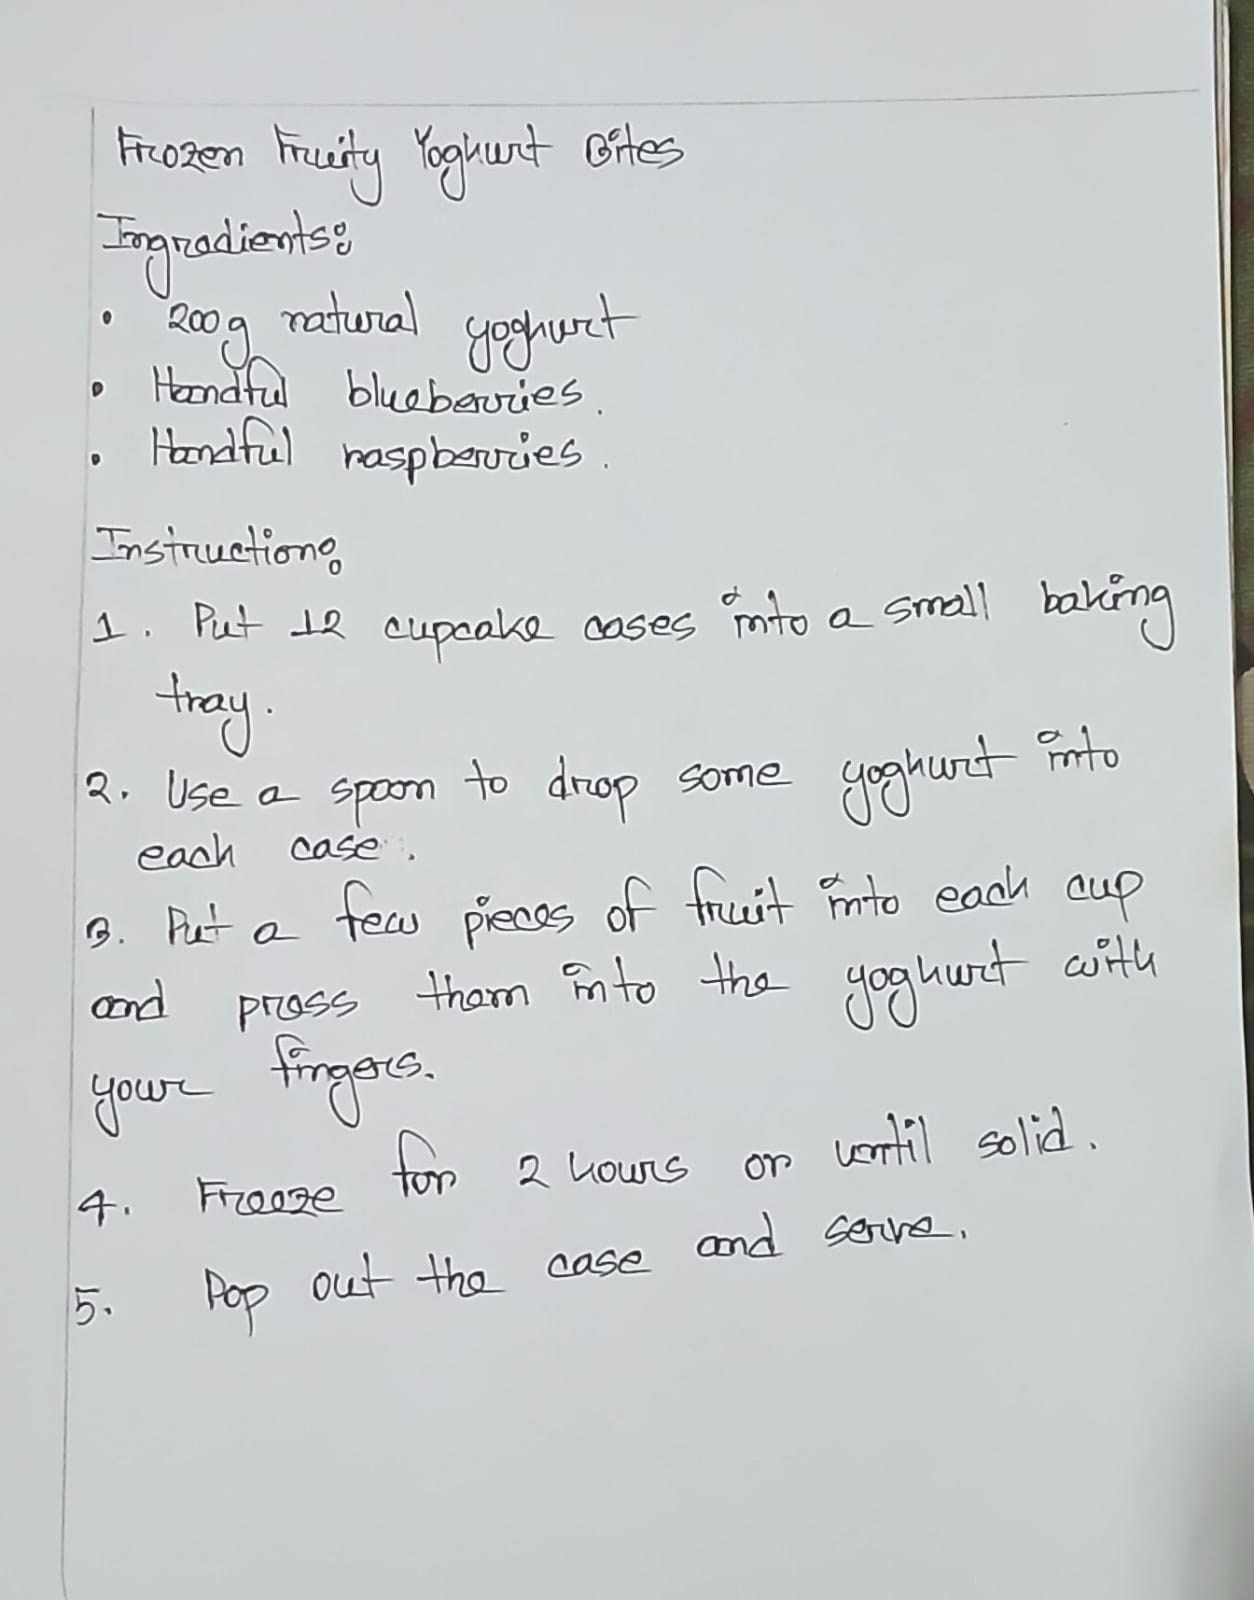 Frozen Fruity Yoghurt Bites
Ingradients:
• 200g natural yoghurt
• Handful blueberries.
• Handful raspberries.
Instruction:
1. Put 12 cupcake cases into a small baking
tray.
2. Use a spoon to drop some yoghurt into
each case.
3. Put a few pieces of fruit into each cup
and press them into the yoghurt with
your fingers.
4. Freeze for 2 hours or until solid.
5. Pop out the case and serve.